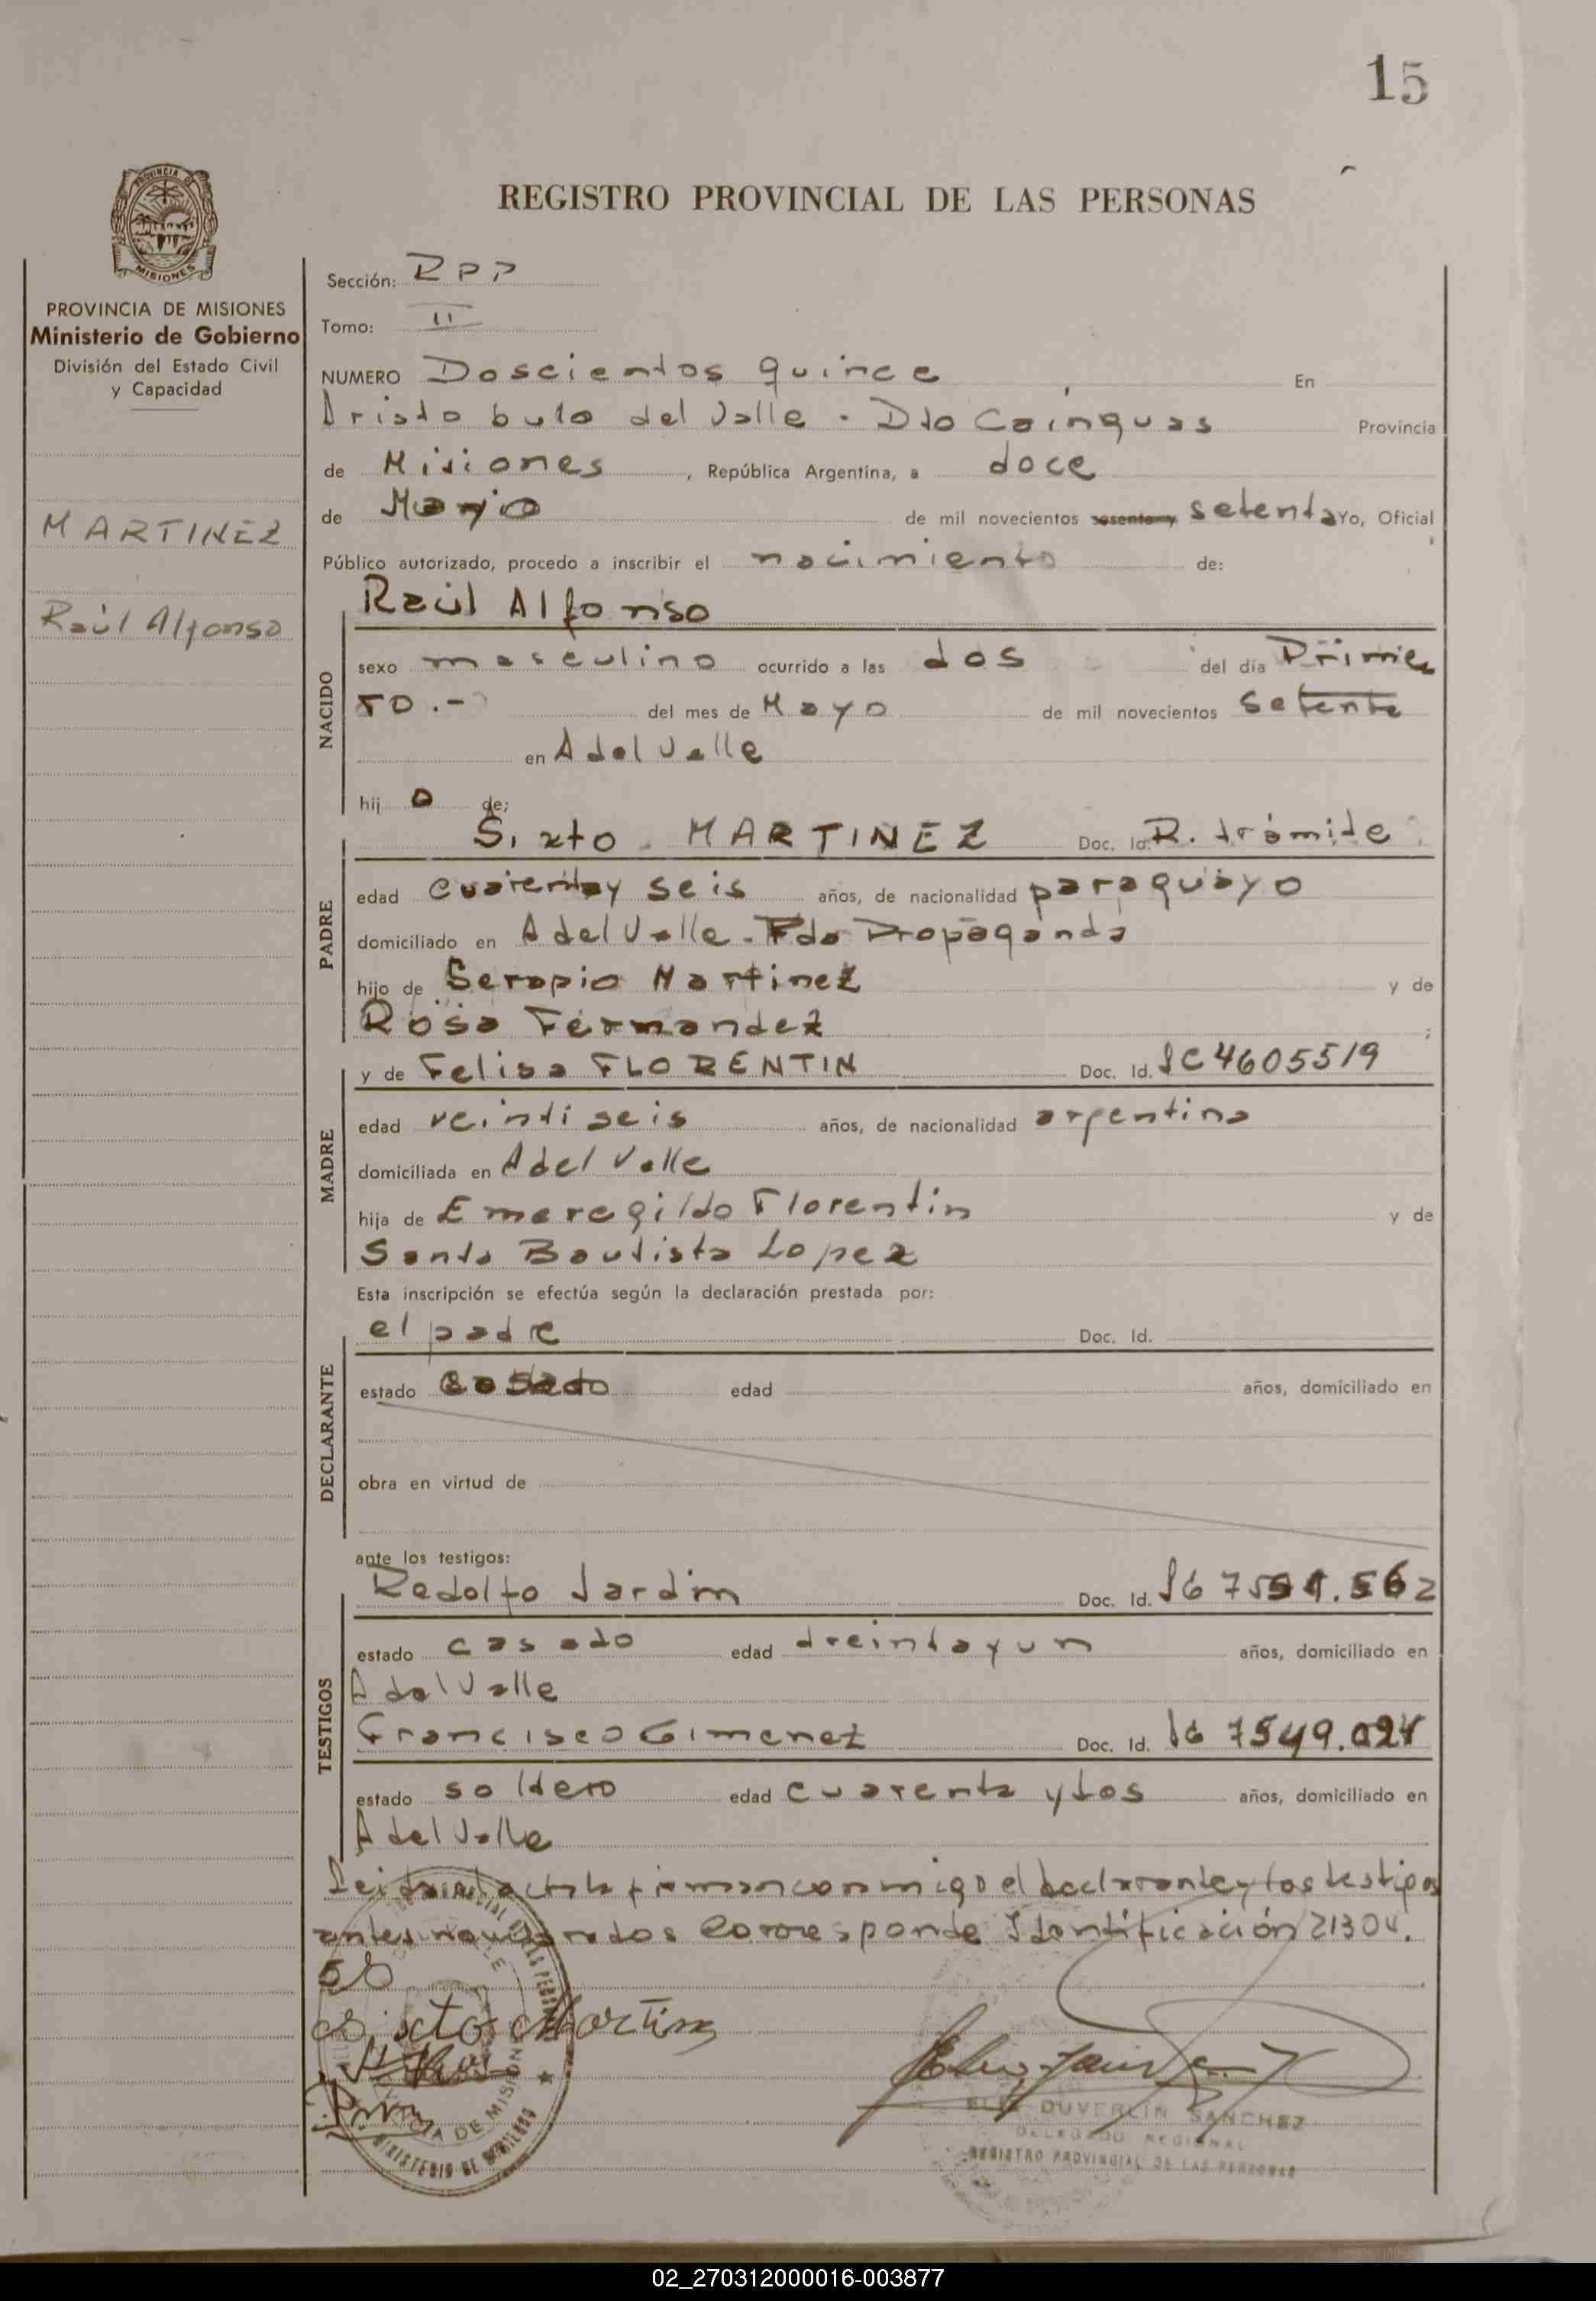 15
REGISTRO PROVINCIAL DE LAS PERSONAS
PROVINCIA DE MISIONES
Ministerio de Gobierno
División del Estado Civil
y Capacidad
MARTINEZ
Raúl Alfonso
Sección: RPP
Tomo: II
NUMERO Doscientos quince En
Aristo bulo del Valle - Dto Cainguas Provincia
de Misiones, República Argentina, a doce
de Mayo de mil novecientos sesenta y setenta Yo, Oficial
Público autorizado, procedo a inscribir el nacimiento de:
NACIDO
Raúl Alfonso
sexo masculino ocurrido a las dos del día Prime
ro.- del mes de Mayo de mil novecientos setenta
en A del Valle
hij o de;
PADRE
Sixto MARTINEZ Doc. Id. R. trámite
edad cuarentay seis años, de nacionalidad paraguayo
domiciliado en A del Valle - Pdo Propaganda
hijo de Serapio Martinez y de
Rosa Fernandez ;
MADRE
y de Felisa FLORENTIN Doc. Id. LC 4605519
edad veintiseis años, de nacionalidad argentina
domiciliada en A del Valle
hija de Emeregildo Florentin y de
Santa Bautista Lopez
Esta inscripción se efectúa según la declaración prestada por:
DECLARANTE
el padre Doc. Id.
estado casado edad años, domiciliado en
obra en virtud de
ante los testigos:
TESTIGOS
Redolfo Jardin Doc. Id.
estado casado edad treintayun años, domiciliado en
A del Valle
Francisco Gimenez Doc. Id.
estado soltero edad cuarenta y dos años, domiciliado en
A del Valle
Leida el acta la firman conmigo el declarante y los testigos
antes nombrados Corresponde Identificación 21304.
58
Sixto Martinez
DUVERLIN SANCHEZ
DELEGADO REGIONAL
REGISTRO PROVINCIAL DE LAS PERSONAS
02_270312000016-003877